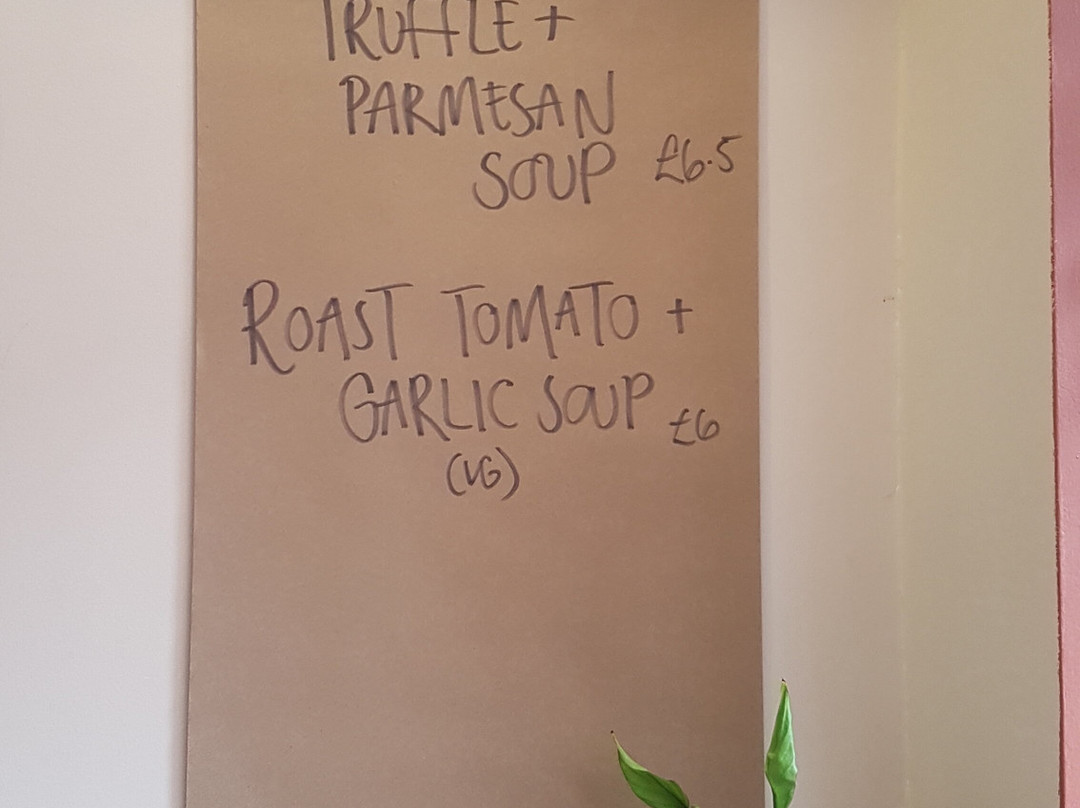 TRUFFLE +
PARMESAN
SOUP £6.5
ROAST TOMATO +
GARLIC SOUP £6
(VG)